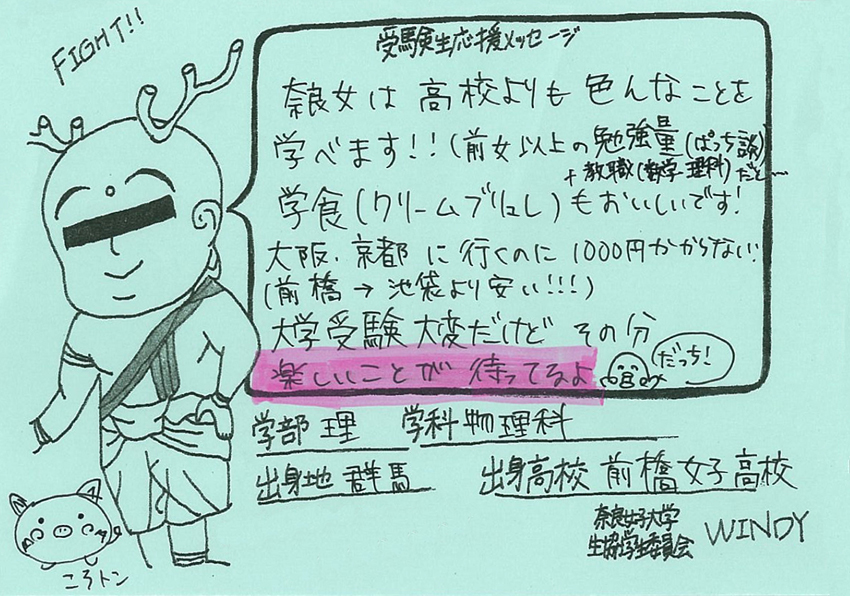 FIGHT!!
受験生応援メッセージ
奈良女は高校よりも色んなことを
学べます!!(前女以上の勉強量(ぱっち談)
+教職(数学・理科)だと…
学食(クリームブリュレ)もおいしいです!
大阪・京都に行くのに1000円かからない!
(前橋→池袋より安い!!!)
大学受験大変だけどその分
楽しいことが待ってるよ
だっち!
学部 理 学科 物理科
出身地 群馬 出身高校 前橋女子高校
ころトン
奈良女子大学
生協学生委員会 WINDY